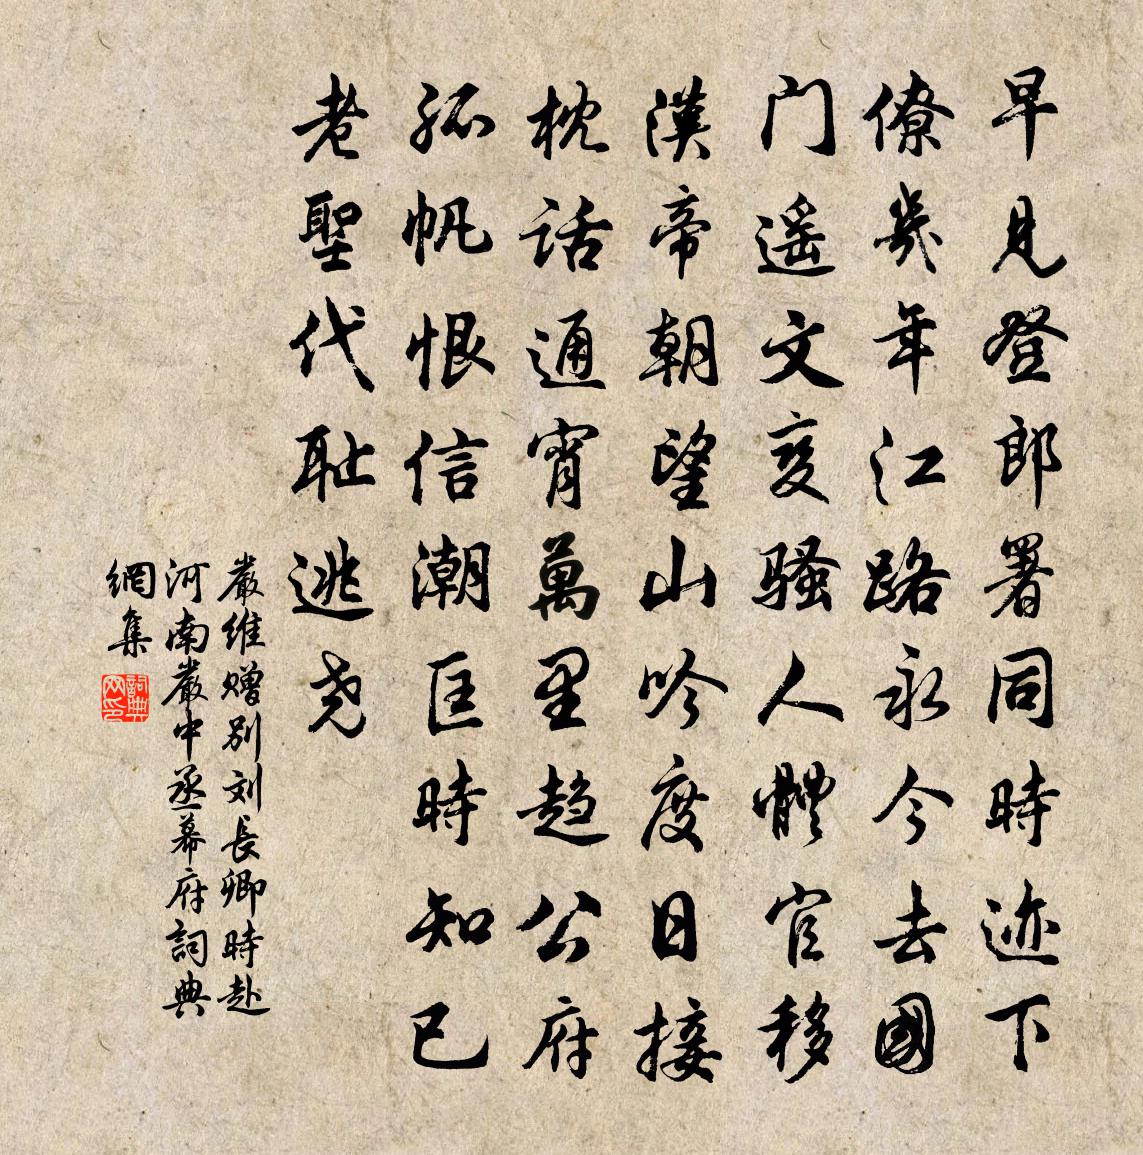 早見登郎署同時迹下
僚幾年江路永今去國
門遥文变骚人體官移
漢帝朝望山吟度日接
枕話通宵萬里趨公府
孤帆恨信潮匡時知已
老聖代耻逃尧
嚴維赠别刘長卿時赴
河南嚴中丞幕府詞典
網集
詞典網印